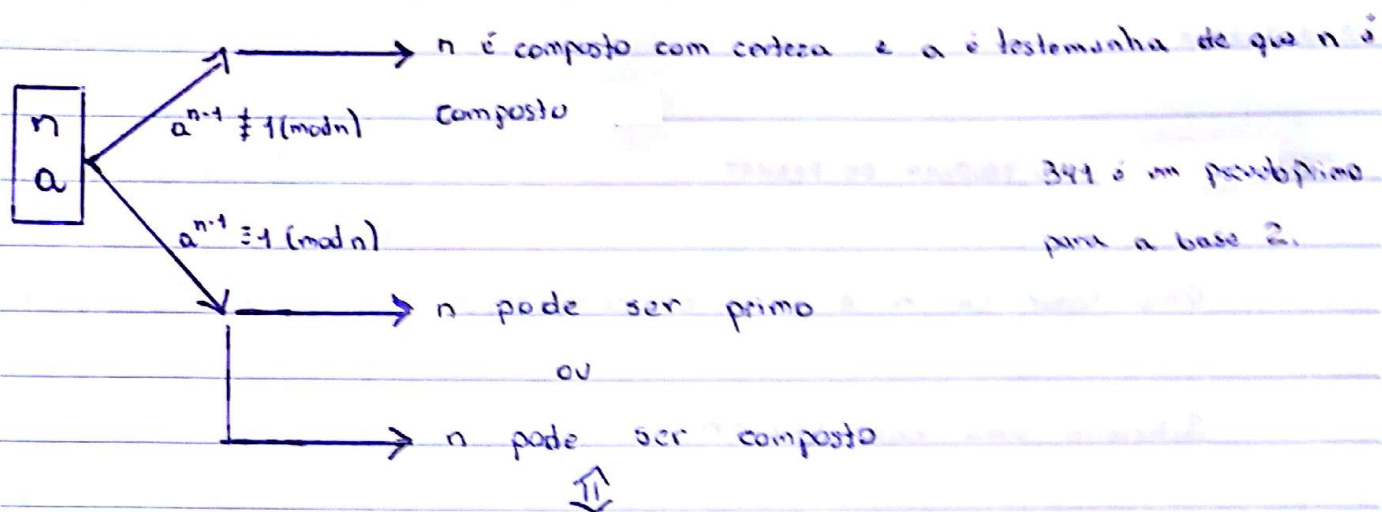 n é composto com certeza e a é testemunha de que n é
composto
n
a
a^{n-1} ≢ 1 (mod n)
341 é um pseudoprimo
para a base 2.
a^{n-1} ≡ 1 (mod n)
n pode ser primo
ou
n pode ser composto